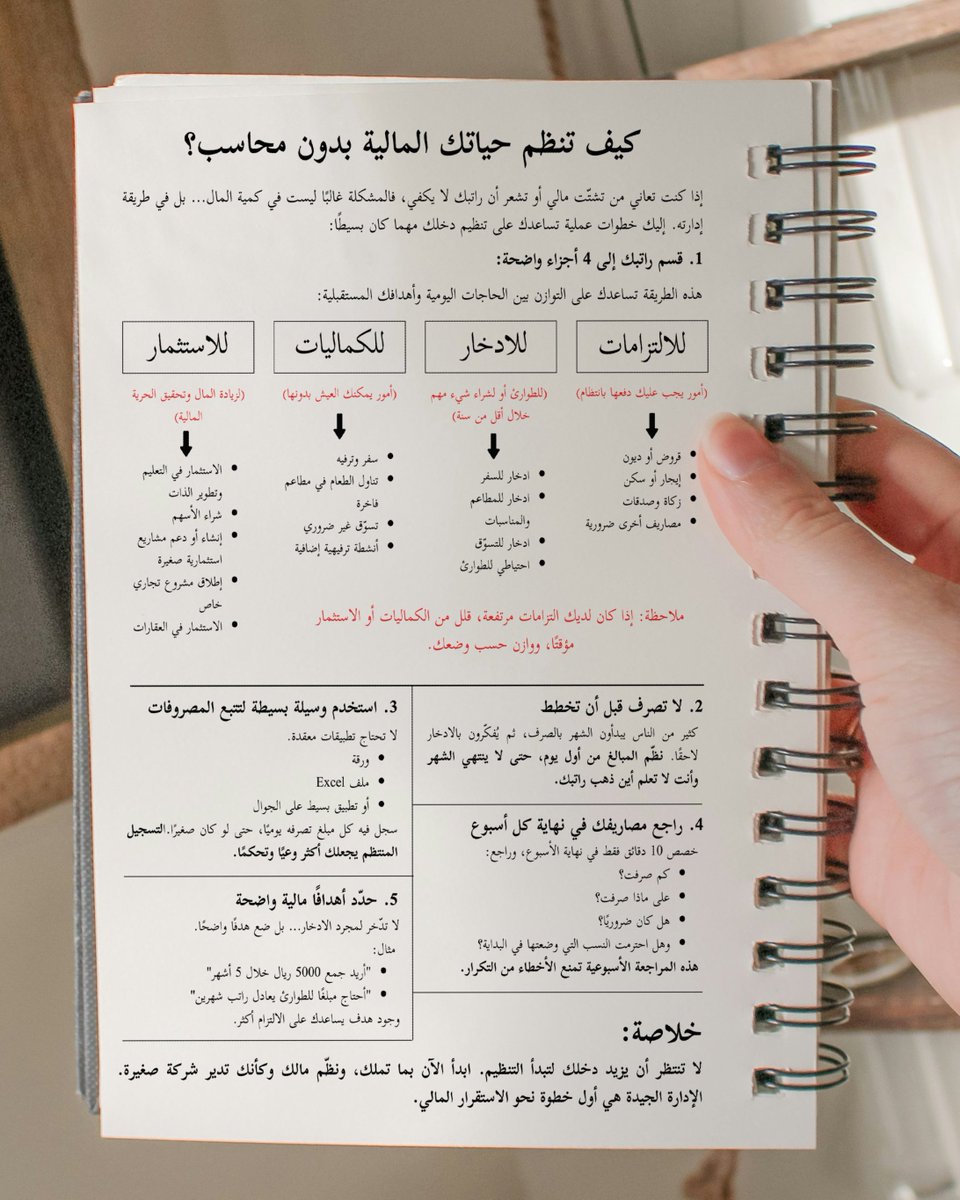 كيف تنظم حياتك المالية بدون محاسب؟
إذا كنت تعاني من تشتّت مالي أو تشعر أن راتبك لا يكفي، فالمشكلة غالبًا ليست في كمية المال... بل في طريقة
إدارته. إليك خطوات عملية تساعدك على تنظيم دخلك مهما كان بسيطًا:
1. قسم راتبك إلى 4 أجزاء واضحة:
هذه الطريقة تساعدك على التوازن بين الحاجات اليومية وأهدافك المستقبلية:
للالتزامات
(أمور يجب عليك دفعها بانتظام)
• قروض أو ديون
• إيجار أو سكن
• زكاة وصدقات
• مصاريف أخرى ضرورية
للادخار
(للطوارئ أو لشراء شيء مهم
خلال أقل من سنة)
• ادخار للسفر
• ادخار للمطاعم
والمناسبات
• ادخار للتسوّق
• احتياطي للطوارئ
للكماليات
(أمور يمكنك العيش بدونها)
• سفر وترفيه
• تناول الطعام في مطاعم
فاخرة
• تسوّق غير ضروري
• أنشطة ترفيهية إضافية
للاستثمار
(لزيادة المال وتحقيق الحرية
المالية)
• الاستثمار في التعليم
وتطوير الذات
• شراء الأسهم
• إنشاء أو دعم مشاريع
استثمارية صغيرة
• إطلاق مشروع تجاري
خاص
• الاستثمار في العقارات
ملاحظة: إذا كان لديك التزامات مرتفعة، قلل من الكماليات أو الاستثمار
مؤقتًا، ووازن حسب وضعك.
2. لا تصرف قبل أن تخطط
كثير من الناس يبدأون الشهر بالصرف، ثم يُفكّرون بالادخار
لاحقًا. نظّم المبالغ من أول يوم، حتى لا ينتهي الشهر
وأنت لا تعلم أين ذهب راتبك.
3. استخدم وسيلة بسيطة لتتبع المصروفات
لا تحتاج تطبيقات معقدة.
• ورقة
• ملف Excel
• أو تطبيق بسيط على الجوال
سجل فيه كل مبلغ تصرفه يوميًا، حتى لو كان صغيرًا.التسجيل
المنتظم يجعلك أكثر وعيًا وتحكمًا.
4. راجع مصاريفك في نهاية كل أسبوع
خصص 10 دقائق فقط في نهاية الأسبوع، وراجع:
• كم صرفت؟
• على ماذا صرفت؟
• هل كان ضروريًا؟
• وهل احترمت النسب التي وضعتها في البداية؟
هذه المراجعة الأسبوعية تمنع الأخطاء من التكرار.
5. حدّد أهدافًا مالية واضحة
لا تدّخر لمجرد الادخار... بل ضع هدفًا واضحًا.
مثال:
• "أريد جمع 5000 ريال خلال 5 أشهر"
• "أحتاج مبلغًا للطوارئ يعادل راتب شهرين"
وجود هدف يساعدك على الالتزام أكثر.
خلاصة:
لا تنتظر أن يزيد دخلك لتبدأ التنظيم. ابدأ الآن بما تملك، ونظّم مالك وكأنك تدير شركة صغيرة.
الإدارة الجيدة هي أول خطوة نحو الاستقرار المالي.